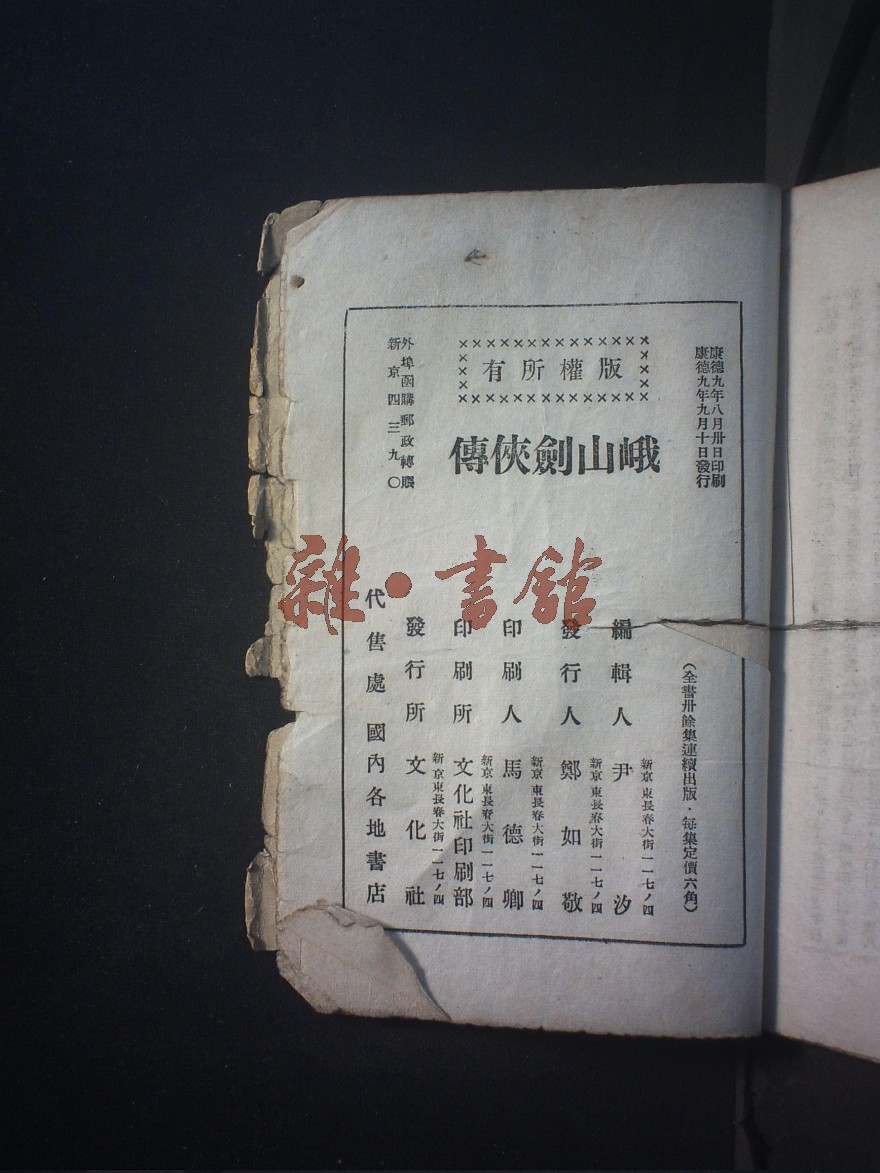 康德九年八月卅日印刷
康德九年九月十日發行
(全書卅餘集連續出版·每集定價六角)
版權所有
峨山劍俠傳
新京東長春大街一一七ノ四
編輯人 尹汐
新京東長春大街一一七ノ四
發行人 鄭如敬
新京東長春大街一一七ノ四
印刷人 馬德卿
新京東長春大街一一七ノ四
印刷所 文化社印刷部
新京東長春大街一一七ノ四
發行所 文化社
外埠函購郵政轉賬
新京四三九〇
代售處 國內各地書店
雜·書館